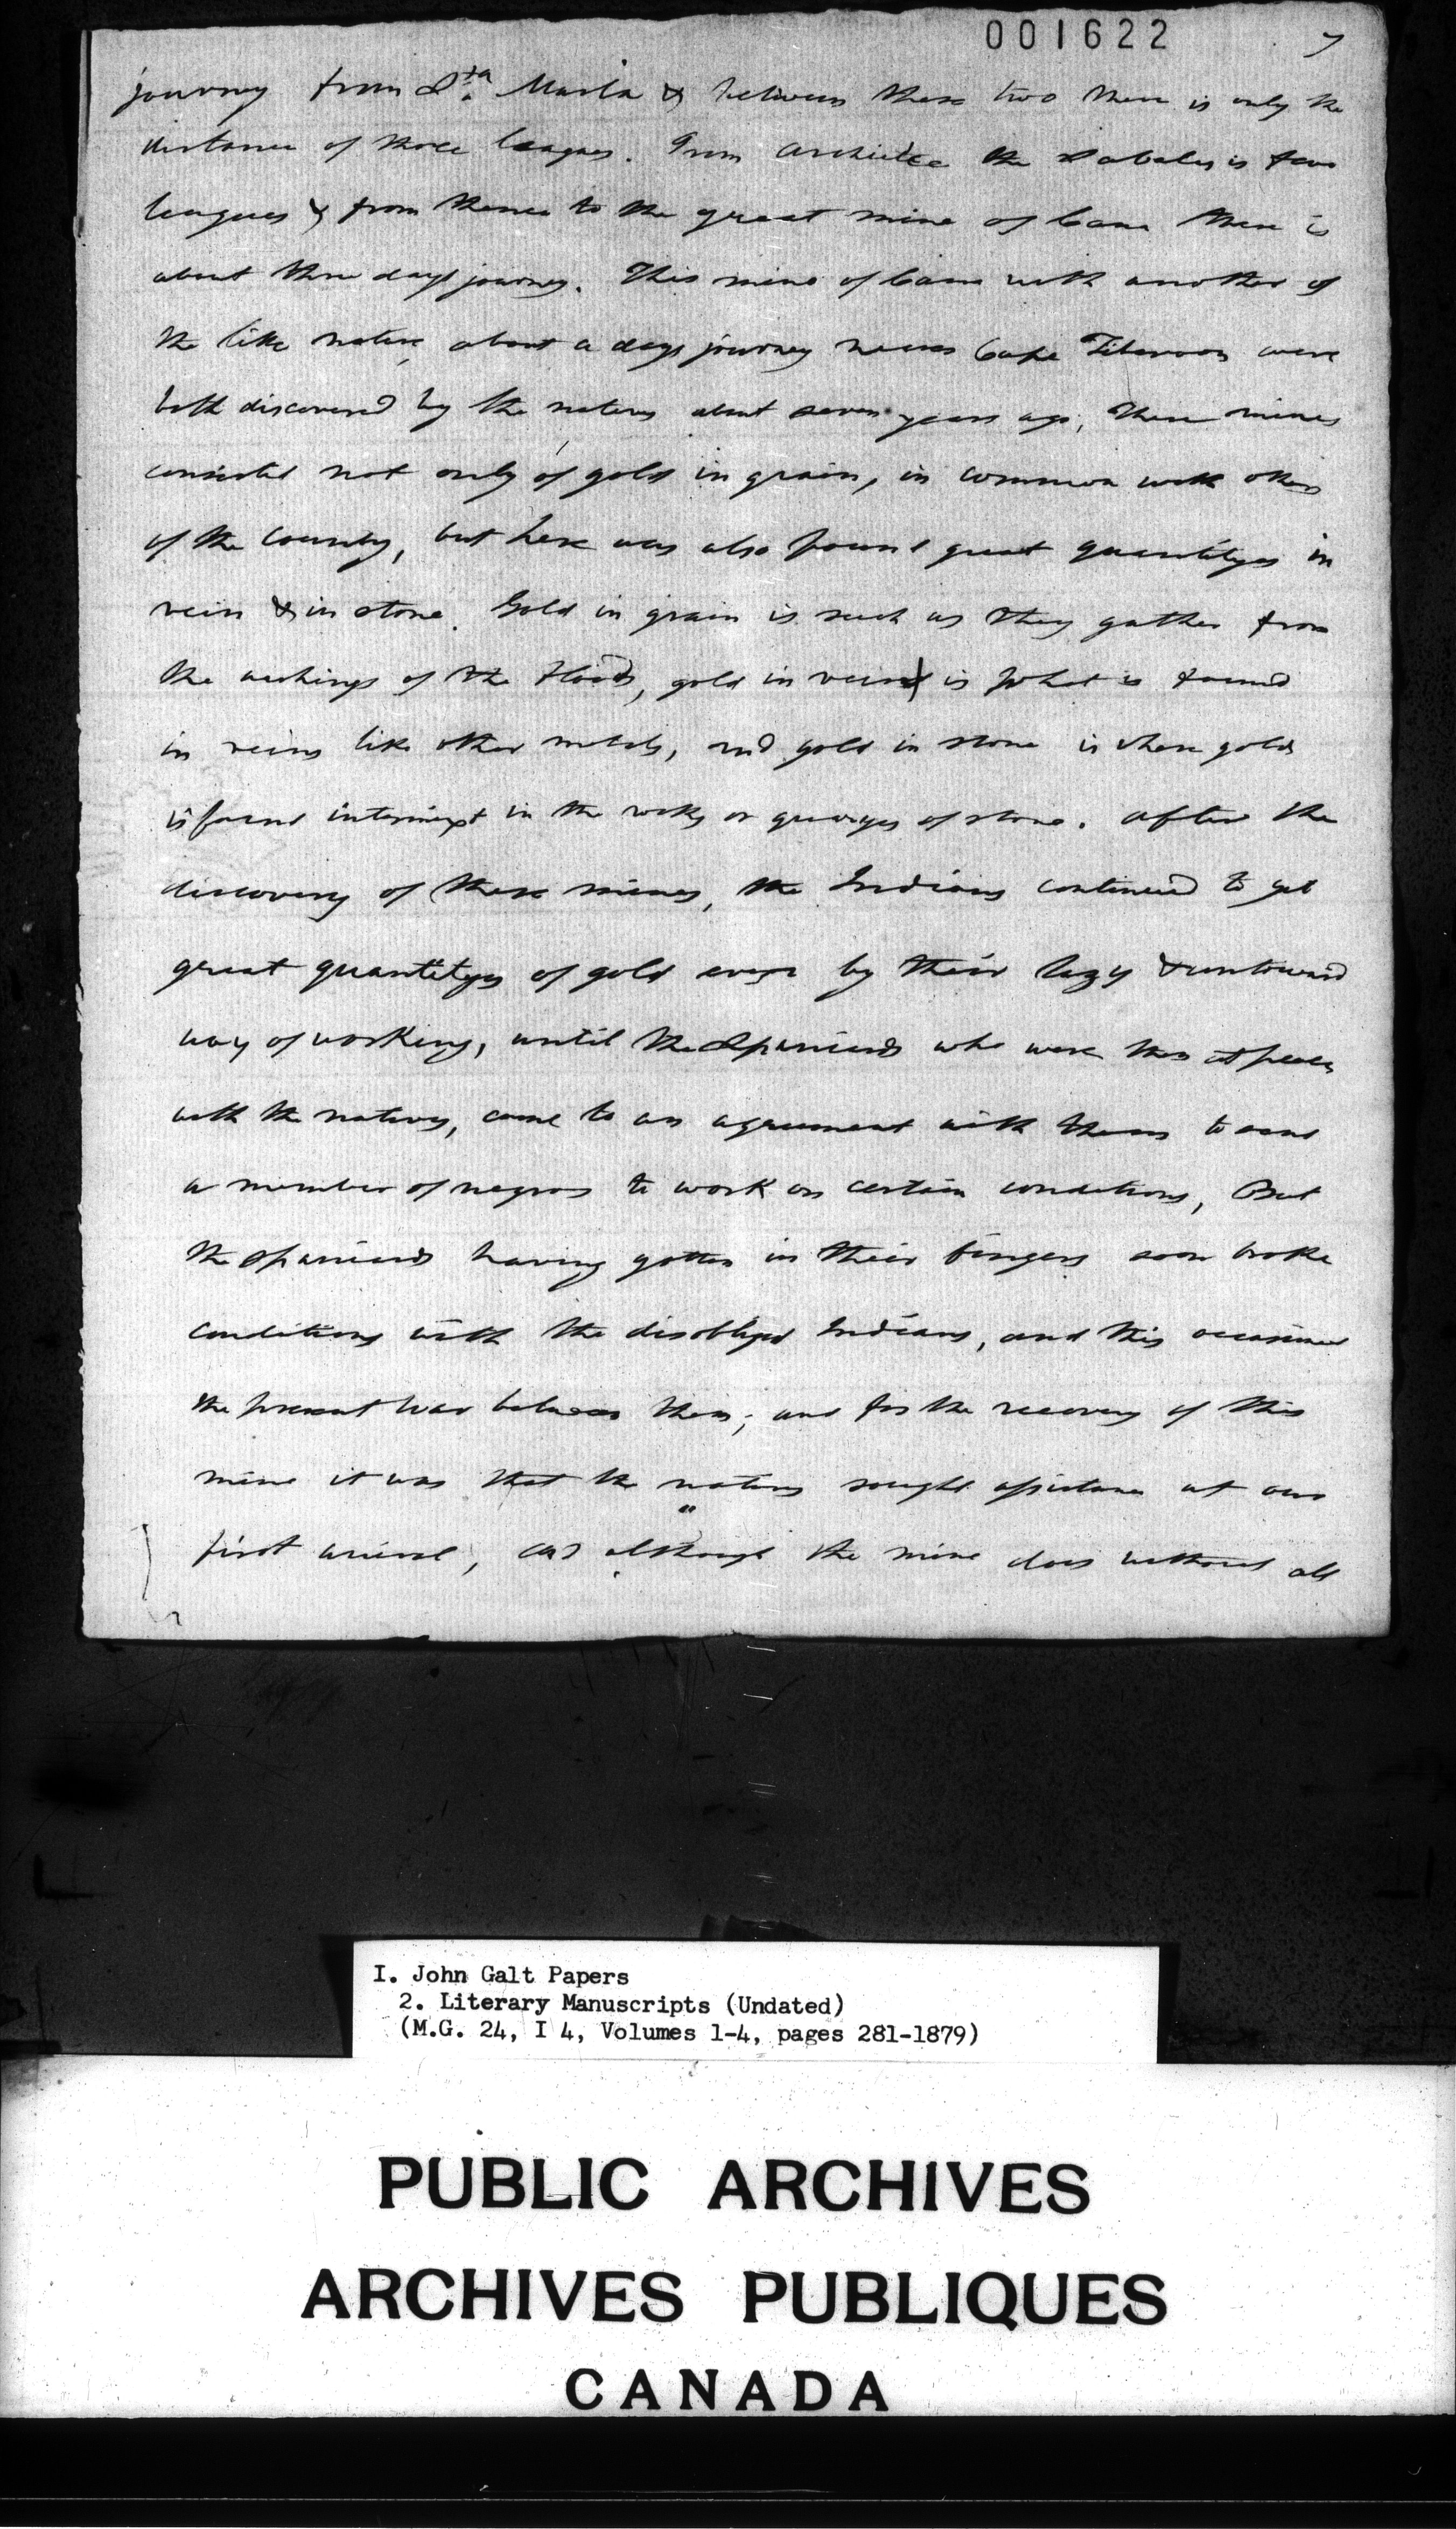 001622
7
journey from Sta. Maria & between these two there is only the
distance of three leagues. From the Sabalos is four
leagues & from thence to the great mine of Cana there is
about three days journey. This mine of Cana with another of
the like nature, about a days journey nearer Cape Tiberoon were
both discovered by the natives about seven years ago, These mines
consisted not only of gold in grain, in common with others
of the Country, but here was also found great quantityes in
vein & in stone. Gold in grain is such as they gather from
the washings of the floods, gold in vein is what is found
in veins like other metals, and gold in stone is where gold
is found intermixt in the rocks or quarryes of stone. After the
discovery of these mines, the Indians continued to get
great quantityes of gold even by their lazy & untoward
way of working, until the Spaniards who were then at peace
with the natives, came to an agreement with them to send
a number of negros to work on certain conditions, But
the Spaniards having gotten in their fingers soon broke
conditions with the disobliged Indians, and this occasioned
the present War between them; and for the recovery of this
mine it was that the natives sought assistance at our
first arrival, and although the mine does without all
I. John Galt Papers
2. Literary Manuscripts (Undated)
(M.G. 24, I 4, Volumes 1-4, pages 281-1879)
PUBLIC ARCHIVES
ARCHIVES PUBLIQUES
CANADA